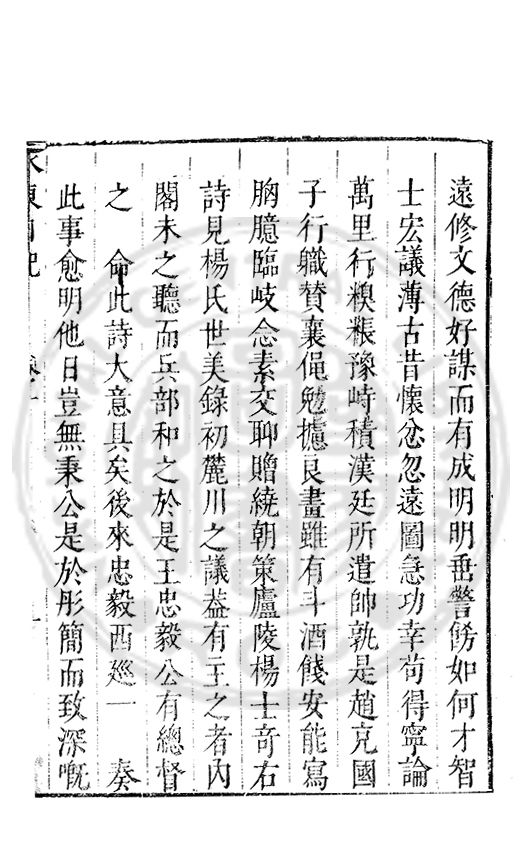 遠修文德好謀而有成明明垂警餝如何才智
士宏議薄古昔懷忿忽遠圖急功幸苟得寧論
萬里行糗粻豫峙積漢廷所遣帥孰是趙充國
子行職賛襄俛勉攄良畫雖有斗酒餞安能寫
胸臆臨岐念素交聊贈繞朝策廬陵楊士竒右
詩見楊氏世美錄初麓川之議葢有主之者內
閣未之聽而兵部和之於是王忠毅公有總督
之　命此詩大意具矣後來忠毅西廵一　奏
此事愈明他日豈無秉公是於彤簡而致深嘅
水東日記